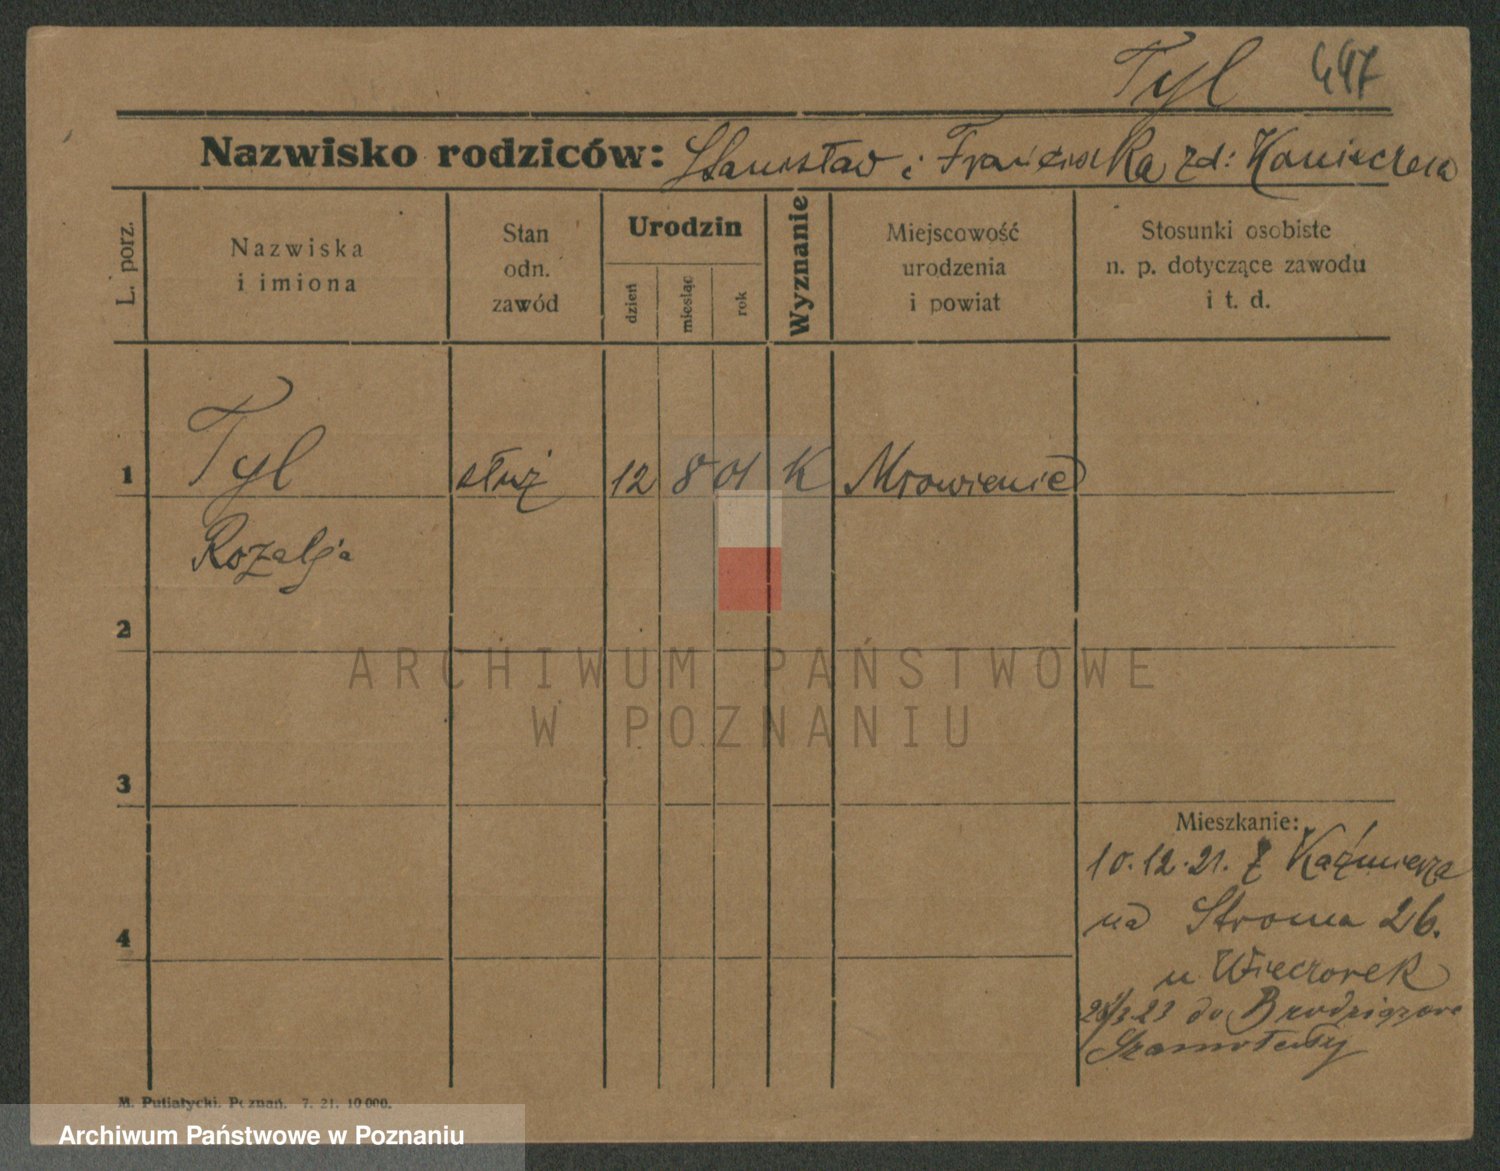 Tyl 447
Nazwisko rodziców: Stanisław i Franciszka zd: Konieczna
L. porz.
Nazwiska
i imiona
Stan
odn.
zawód
Urodzin
dzień
miesiąc
rok
Wyznanie
Miejscowość
urodzenia
i powiat
Stosunki osobiste
n. p. dotyczące zawodu
i t. d.
1 Tyl służ 12 8 01 K Mrowienie
Rozalja
2
ARCHIWUM PAŃSTWOWE
W POZNANIU
3
Mieszkanie:
10.12.21. z Kaźmierza
na Stroma 26.
4
u Wieczorek
3.23 do
Szamotuły
M. Putiatycki. Poznań. 7. 21. 10 000.
Archiwum Państwowe w Poznaniu